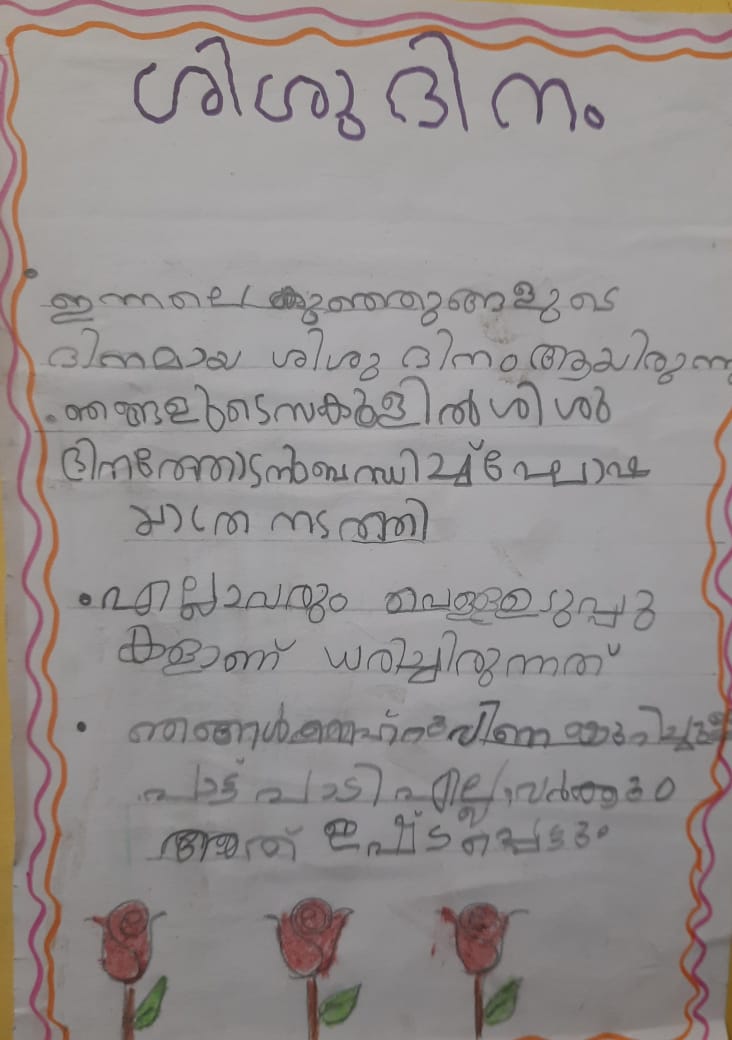 ശിശു ദിനം
ഇന്നലെ കുഞ്ഞുങ്ങളുടെ
ദിനമായ ശിശു ദിനം ആയിരുന്നു
. ഞങ്ങളുടെ സകുളിൽ ശിശു
ദിനത്തോടൻബന്ധിച്ച് ഘോഷ
യാത്ര നടത്തി
• എല്ലാവരും വെള്ള ഉടുപ്പു
കളാണ് ധരിച്ചിരുന്നത്
• ഞങ്ങൾ
പാട്ട് പാടി എല്ലാവർക്കും
അത്